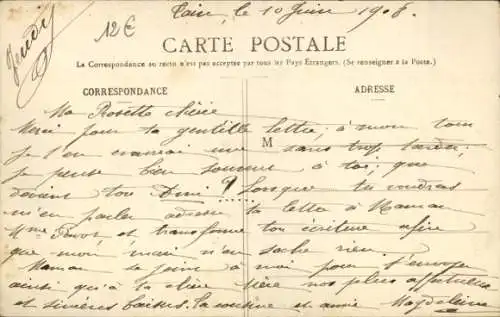 Jeudi
12€
le 10 Juin 1908.
CARTE POSTALE
La Correspondance au recto n'est pas acceptée par tous les Pays Étrangers. (Se renseigner à la Poste.)
CORRESPONDANCE
ADRESSE
Ma Rosette chérie
Merci pour ta gentille lettre; à mon tour
M
je t'en une sans trop tarder;
je pense bien souvent à toi; que
devient ton ? Lorsque tu voudras
m'en parler adresse ta lettre à Maman
Mme et transforme ton écriture afin
que mon mari n'en sache rien.
Maman se joint à moi pour t'envoyer
ainsi qu'à ta chère Mère nos plus affectueux
et sincères baisers. Ta cousine et amie Magdeleine